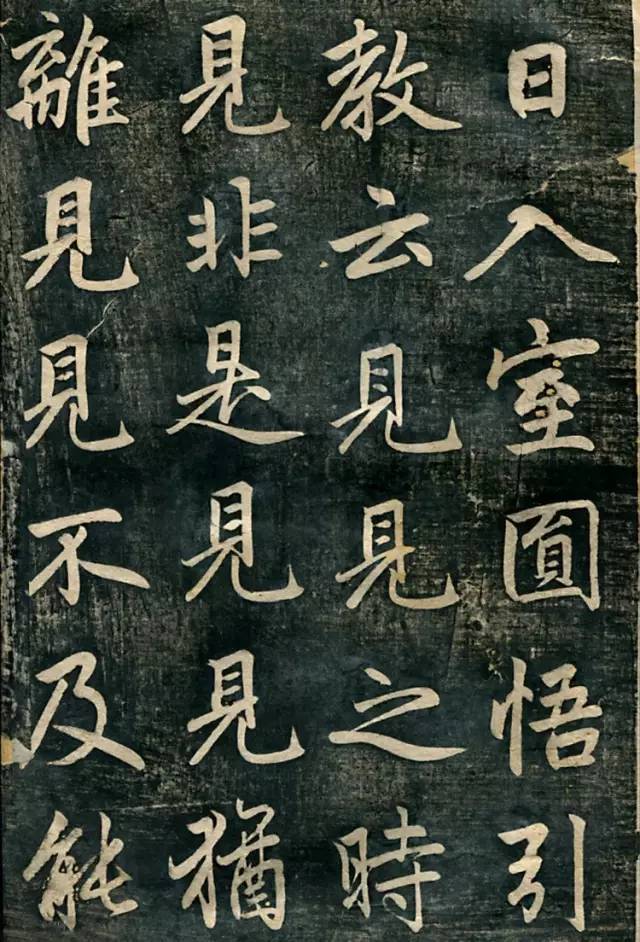 日入室圎悟引
教云見見之時
見非是見見猶
離見見不及能